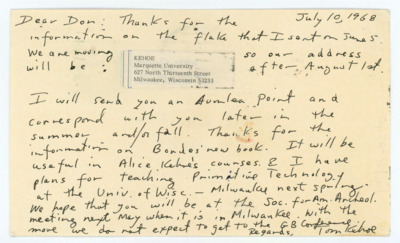 Dear Don: Thanks for the July 10, 1968
information on the flake that I sent on June 5
We are moving so our address
will be: after August 1st
KEHOE
Marquette University
627 North Thirteenth Street
Milwaukee, Wisconsin 53233
I will send you an Avonlea Point and
correspond with you later in the
summer and/or fall. Thanks for the
information on Bordes' new book. It will be
useful in Alice Kehoe's courses. & I have
plans for teaching Primitive Technology
at the Univ. of Wisc. – Milwaukee next spring.
We hope that you will be at the Soc. for Am. Archeol.
meeting next May when it is in Milwaukee. With the
move we do not expect to get to the GB Conference.
Regards, Tom Kehoe